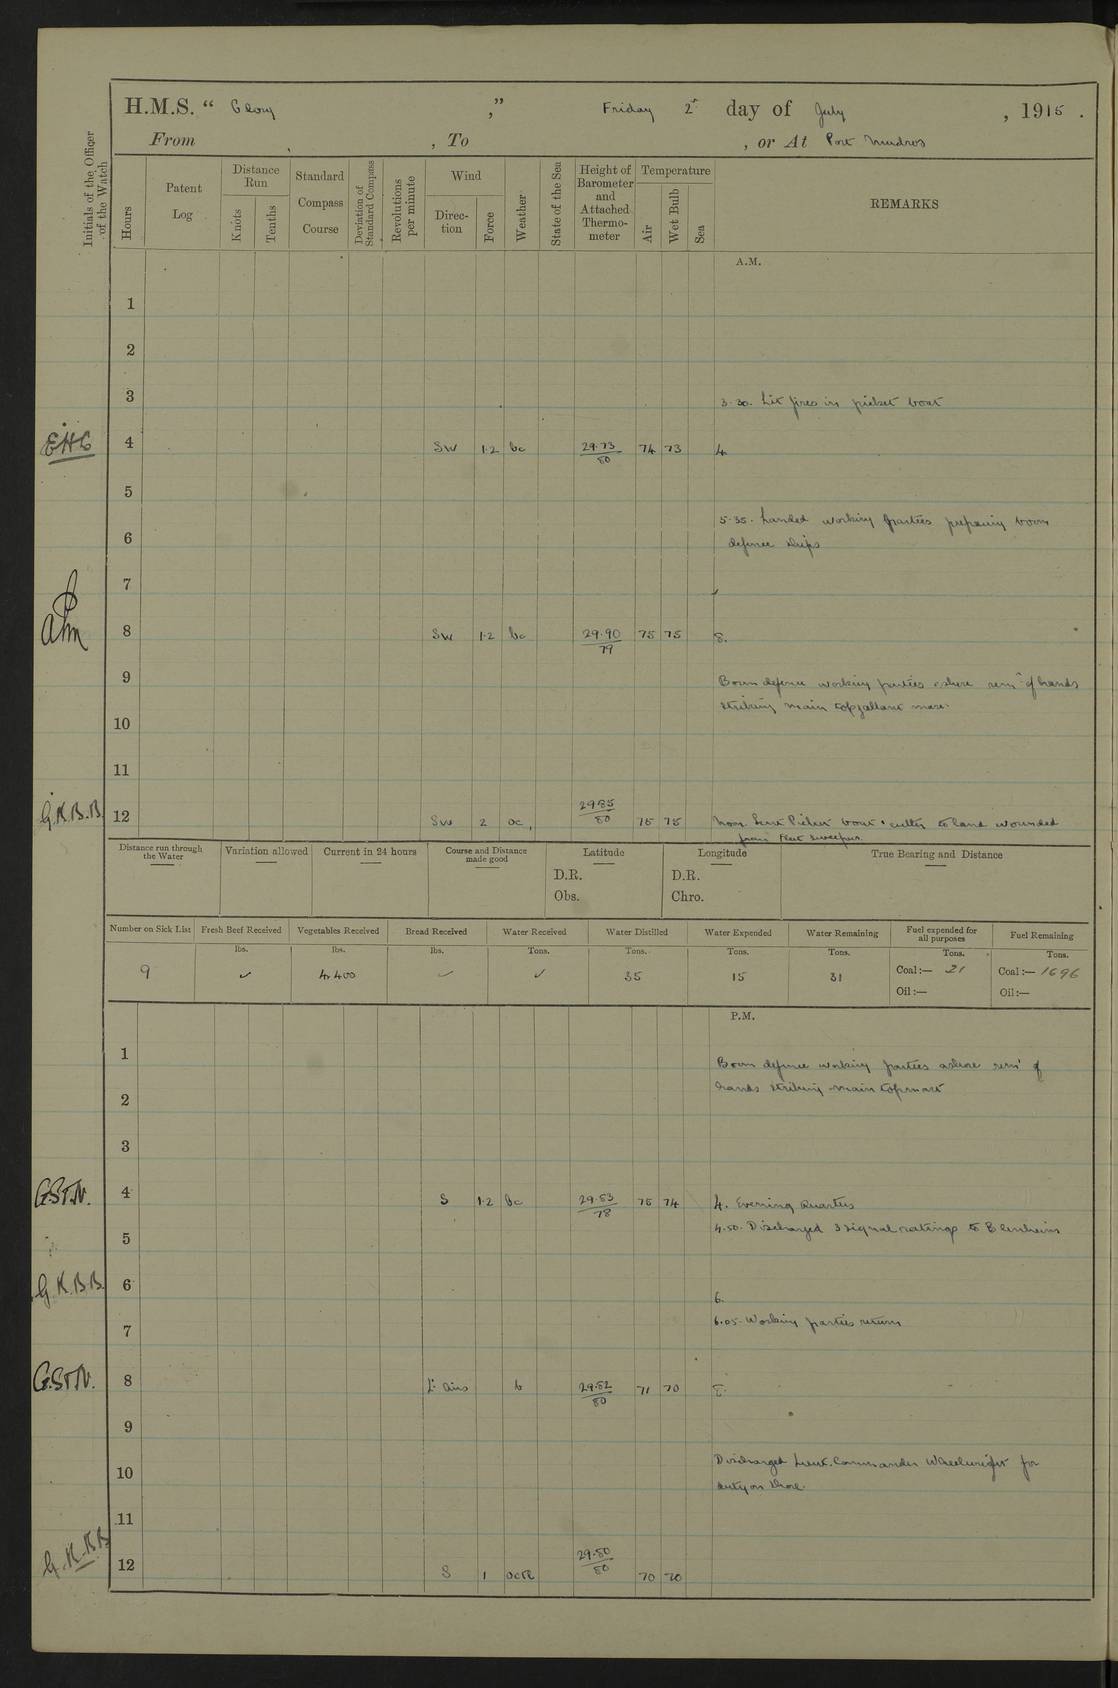 H.M.S. “ Glory ” , Friday 2nd day of July , 1915 .
From , To , or At Port Mudros
Initials of the Officer of the Watch
Hours
Patent Log
Distance Run
Knots
Tenths
Standard Compass Course
Deviation of Standard Compass
Revolutions per minute
Wind
Direc-tion
Force
Weather
State of the Sea
Height of Barometer and Attached Thermo-meter
Temperature
Air
Wet Bulb
Sea
REMARKS
A.M.
1
2
3 3.30. Lit fires in picket boat
EHC 4 SW 1.2 bc 29.73/80 74 73 4
5
5.35. Landed working parties preparing boom
6 defence ships
7
8 SW 1.2 bc 29.90/79 75 75 8.
9 Boom defence working parties ashore remr of hands
10 striking main topgallant mast.
11
G.K.B.B. 12 SW 2 oc, 29.85/80 75 75 Noon. Sent Picket boat & cutter to land wounded
from Fleet sweeper.
Distance run through the Water
Variation allowed
Current in 24 hours
Course and Distance made good
Latitude
D.R.
Obs.
Longitude
D.R.
Chro.
True Bearing and Distance
Number on Sick List 9
Fresh Beef Received lbs. ✓
Vegetables Received lbs. 4,400
Bread Received lbs. ✓
Water Received Tons. ✓
Water Distilled Tons. 35
Water Expended Tons. 15
Water Remaining Tons. 31
Fuel expended for all purposes Tons.
Coal:— 21
Oil:—
Fuel Remaining Tons.
Coal:— 1696
Oil:—
P.M.
1 Boom defence working parties ashore remr of
2 hands striking main topmast
3
G.St.N. 4 S 1.2 bc 29.83/78 75 74 4. Evening Quarters
4.50. Discharged 3 signal ratings to Blenheim
5
G.K.B.B. 6 6.
7 6.05. Working parties return
G.St.N. 8 Lt Airs b 29.82/80 71 70 8.
9
10 Discharged Lieut. Commander Wheelwright for
duty on shore.
11
G.K.B.B. 12 S 1 29.80/80 70 70